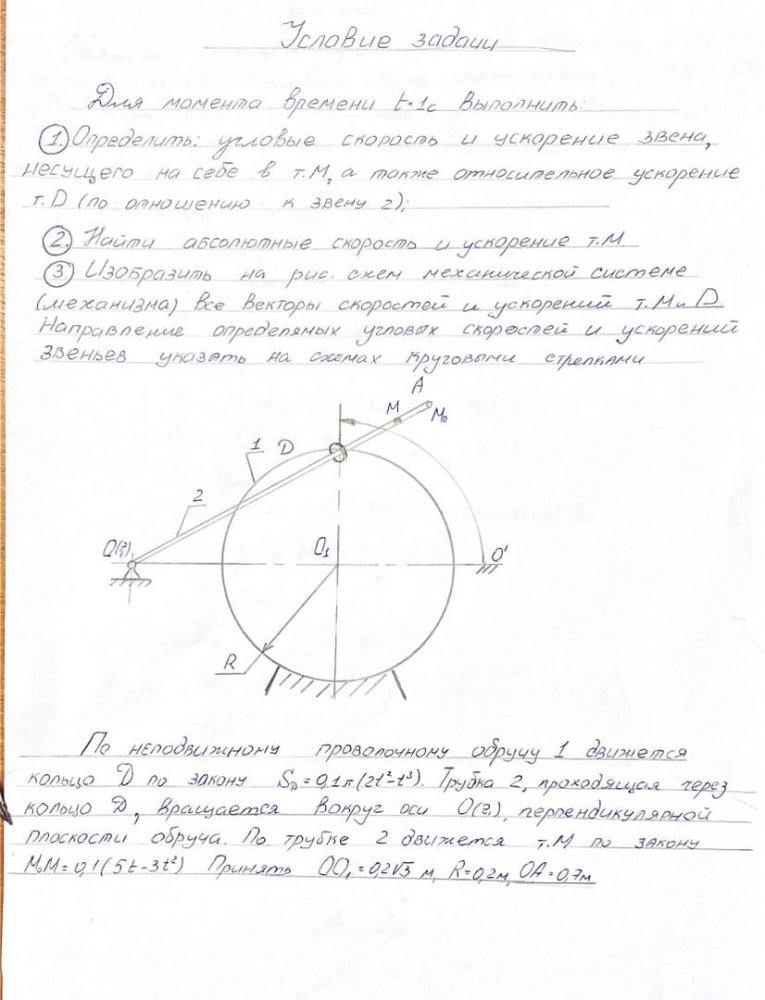 Условие задачи
Для момента времени t=1с выполнить:
1. Определить: угловые скорость и ускорение звена,
несущего на себе в т.М, а также относительное ускорение
т.D (по отношению к звену 2);
2. Найти абсолютные скорость и ускорение т.М
3 Изобразить на рис. схем механической системе
(механизма) все векторы скоростей и ускорений т.М и D.
Направление определямых угловых скоростей и ускорений
звеньев указать на схемах круговыми стрелками
A
M
M₀
1 D
2
O₁
O'
R
По неподвижному проволочному обручу 1 движется
кольцо D по закону S_D=0,1π(2t²-t³). Трубка 2, проходящая через
кольцо D, вращается вокруг оси перпендикулярной
плоскости обруча. По трубке 2 движется т.М по закону
M₀M=0,1(5t-3t²) Принять OO₁=0,2√3 м, R=0,2м, OA=0,7м